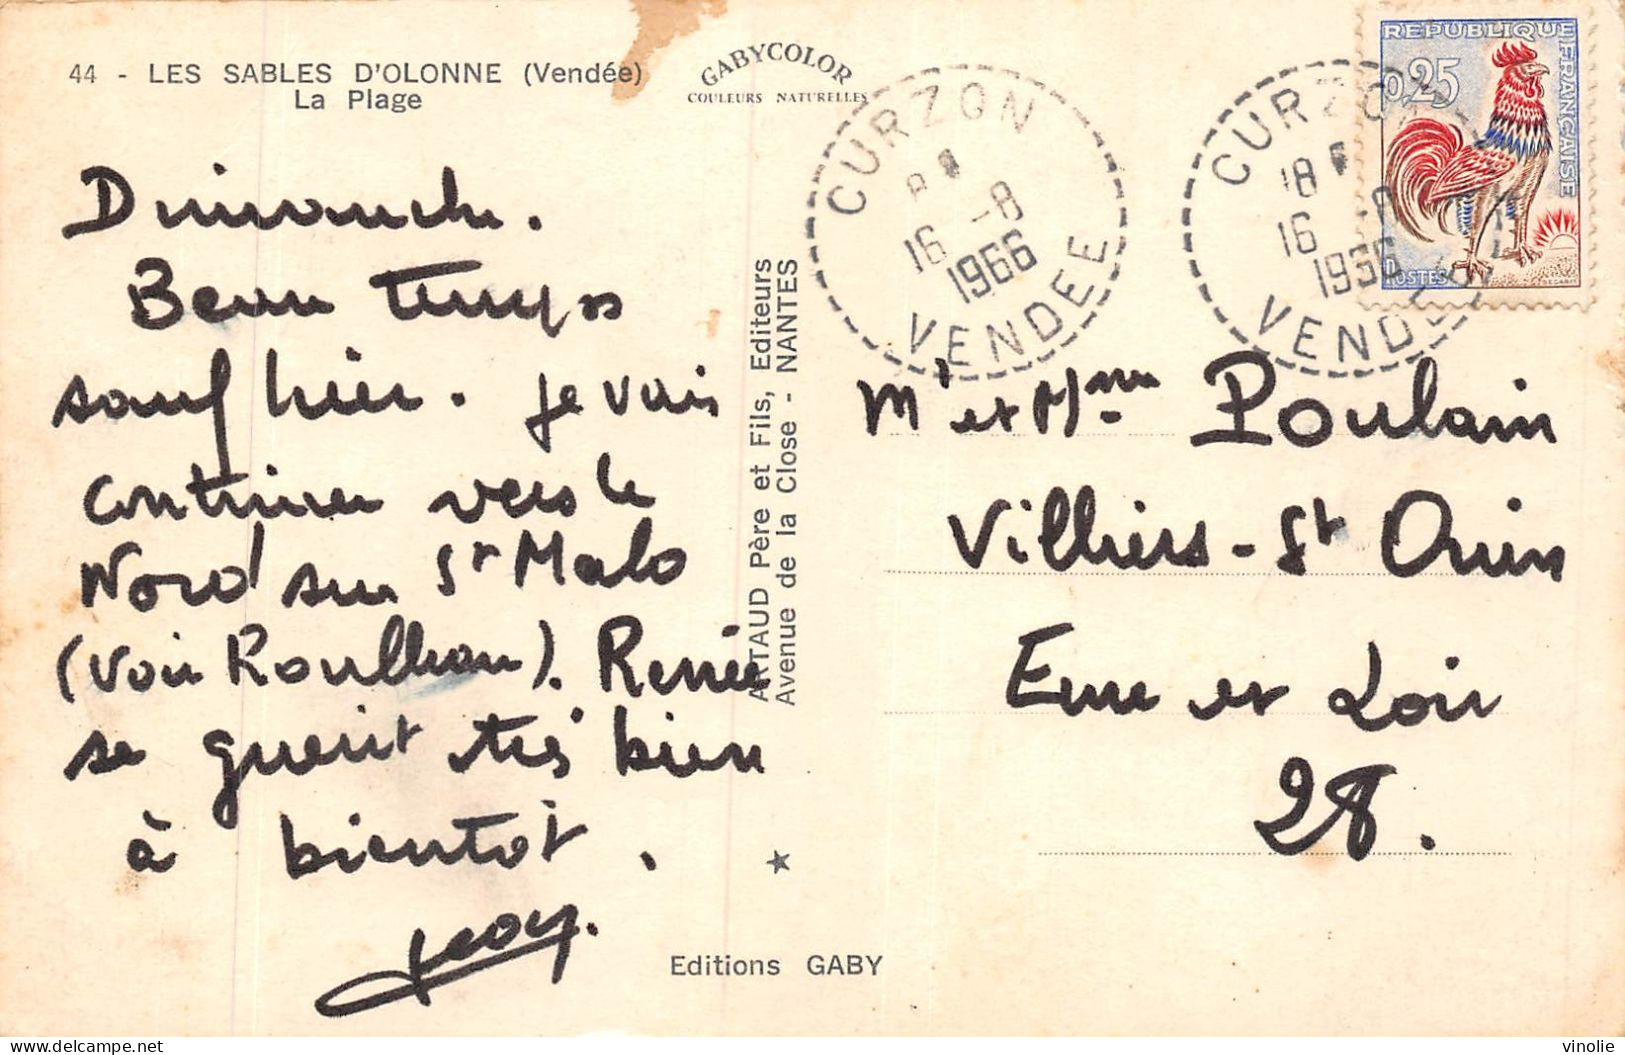 44 - LES SABLES D'OLONNE (Vendée)
La Plage
GABYCOLOR
COULEURS NATURELLES
Dimanche.
Beau temps
sauf hier. Je vais
continuer vers le
Nord sur St Malo
(voir Roulhan). Renée
se guerit très bien
à bientôt.
ARTAUD Père et Fils, Editeurs
Avenue de la Close - NANTES
Editions GABY
CURZON
16 -8
1966
VENDEE
CURZON
18
16 -8
1966
VENDEE
REPUBLIQUE
FRANÇAISE
0,25
POSTES
Mr et Mme Poulain
Villiers-St Orien
Eure et Loir
28.
vinolie